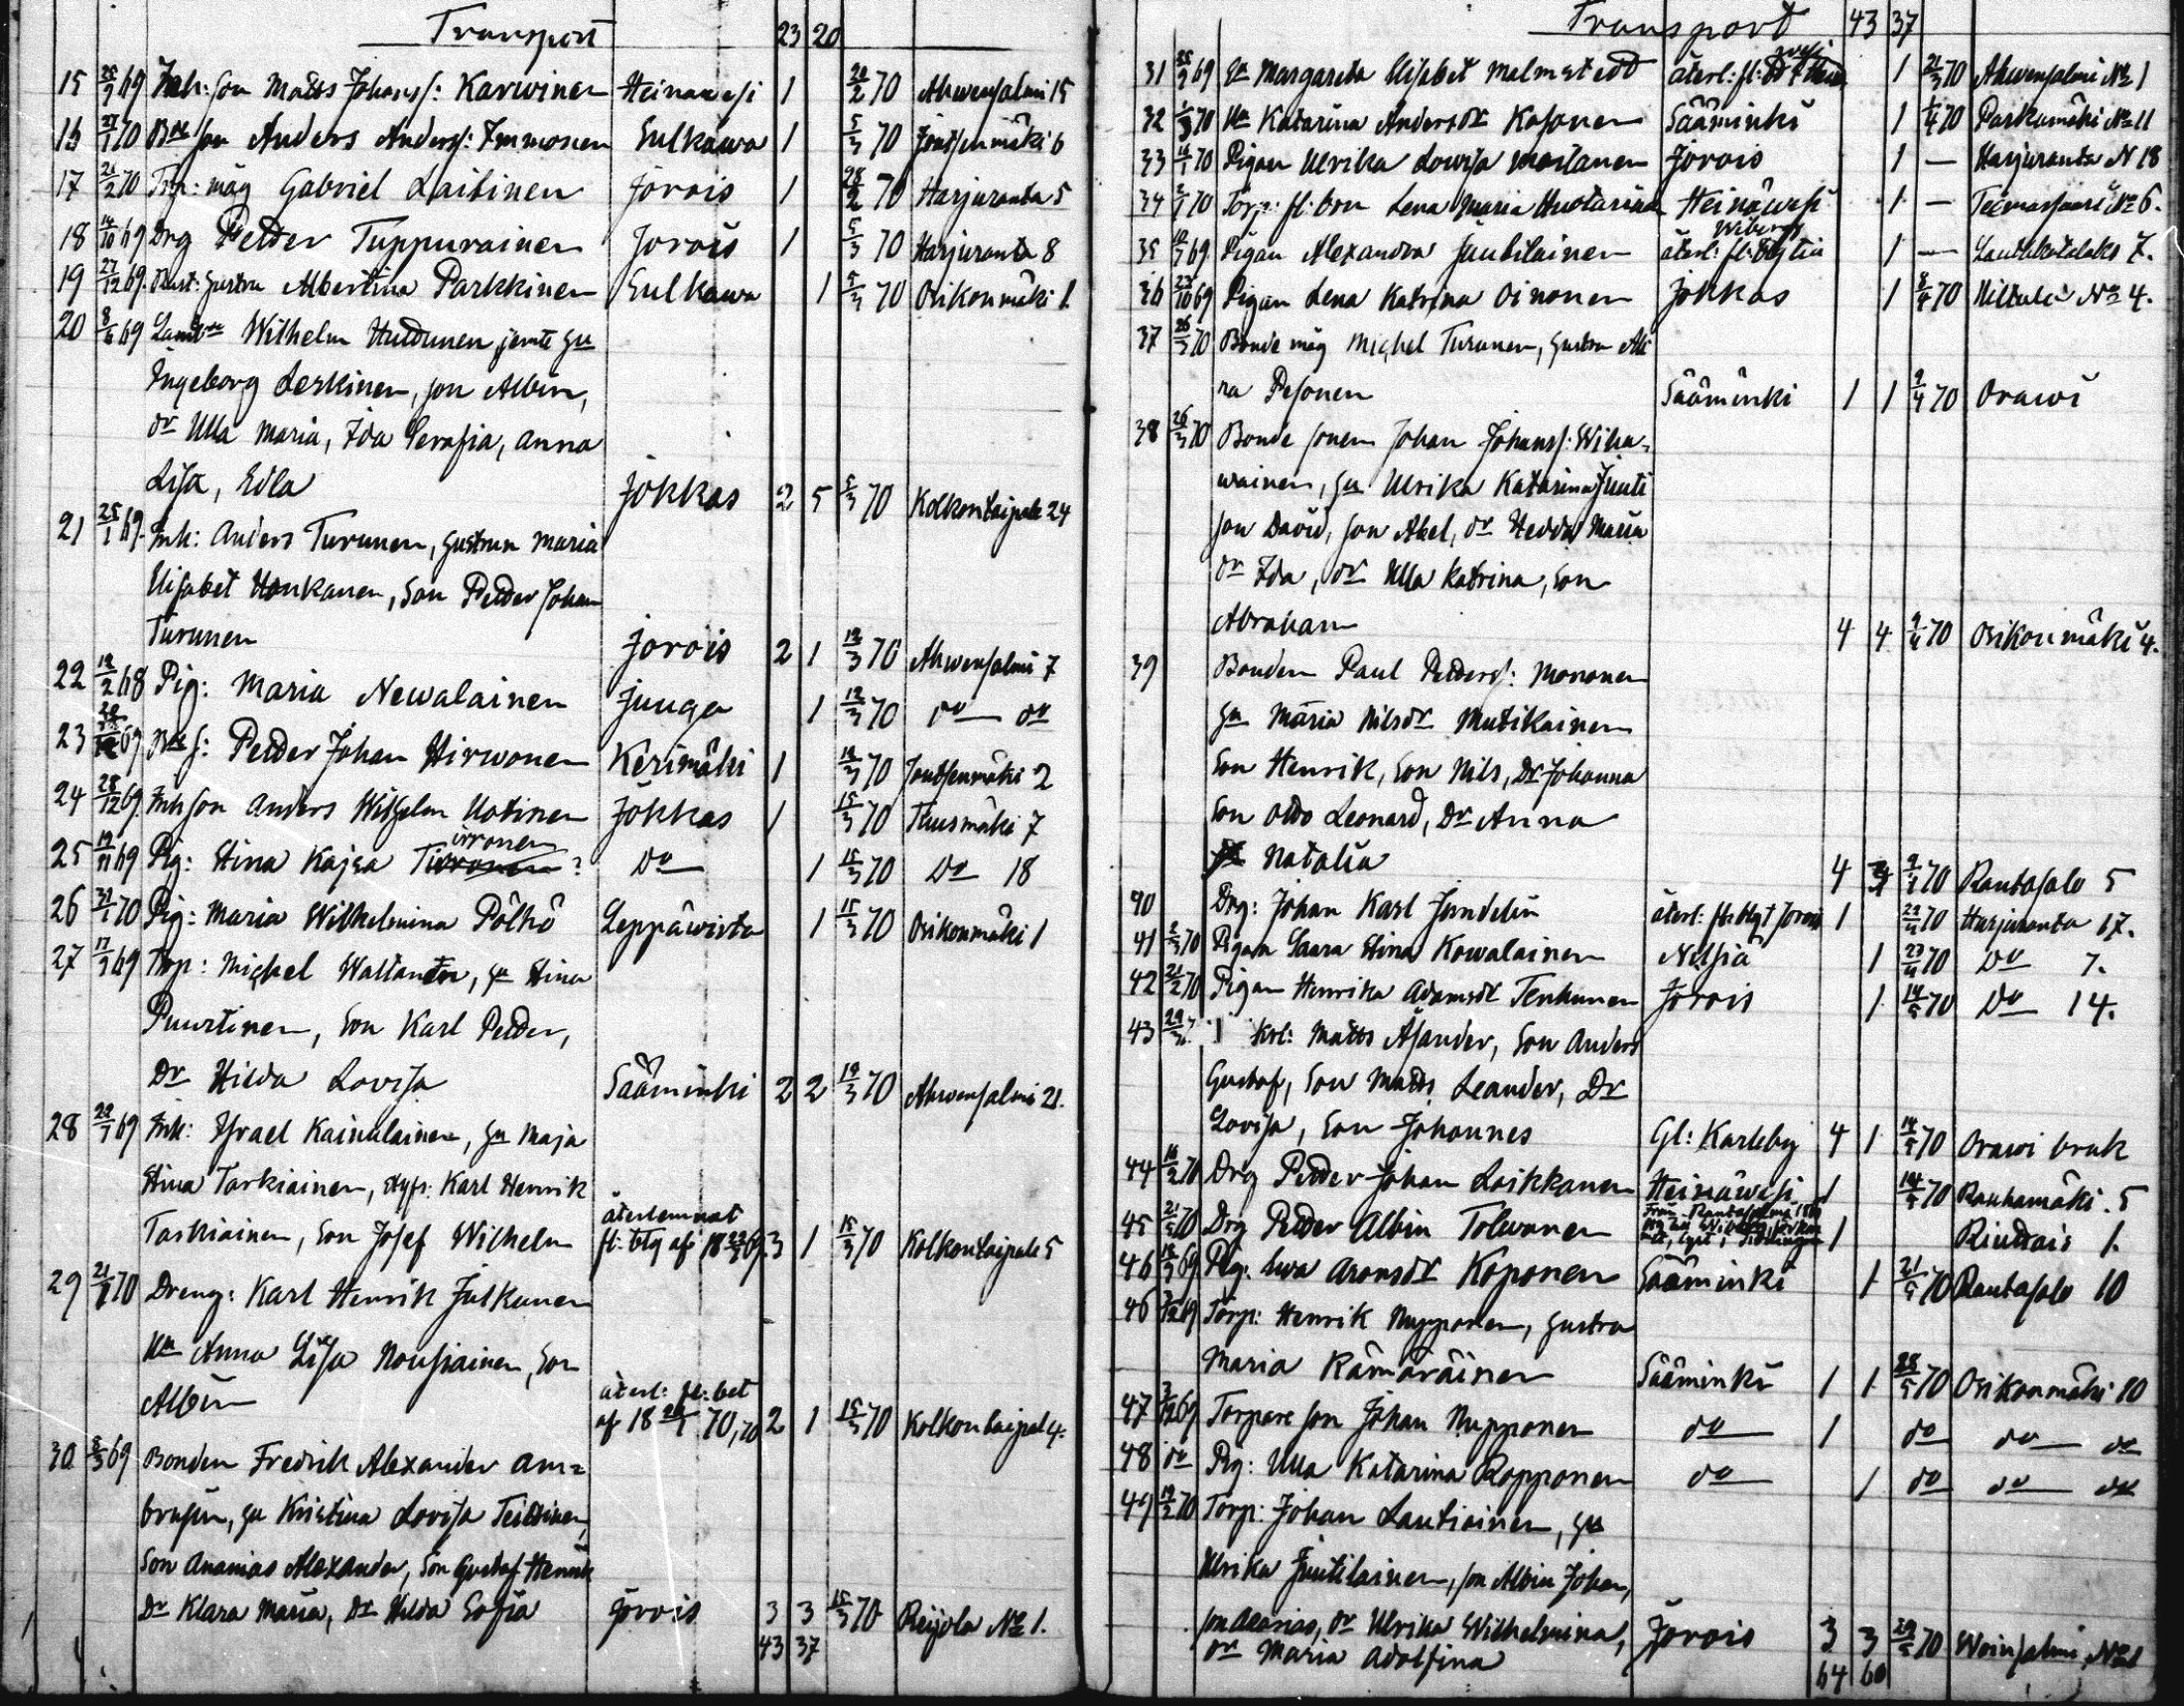 Transport 23 20
15 25/9 69 Inh: son Matts Johanss: Karwinen Heinawesi 1 20/2 70 Ahwensalmi 15
16 27/1 70 Bde son Anders Anderss: Immonen Sulkawa 1 5/3 70 Joutsenmäki 6
17 21/2 70 måg Gabriel Laitinen Jorois 1 28/2 70 Harjuranta 5
18 14/10 69 Drg Petter Tuppurainen Jorois 1 5/3 70 Harjuranta 8
19 27/12 69. hustru Albertina Parkkinen Sulkawa 1 5/3 70 Osikonmäki 1.
20 8/6 69 Wilhelm Huttunen jemte hu
Ingeborg Leskinen, son Albin,
dr Ulla Maria, Ida Serafia, Anna
Lisa, Edla Jokkas 2 5 5/3 70 Kolkontaipale 24
21 25/1 69. Inh: Anders Turunen, hustrun Maria
Elisabet Honkanen, Son Petter Johan
Turunen Jorois 2 1 12/3 70 Ahwensalmi 7
22 12/2 68 Pig: Maria Newalainen Juuga 1 12/3 70 do do
23 69 Bde s: Petter Johan Hirwonen Kerimäki 1 12/3 70 Joutsenmäki 2
24 28/12 69. Inh son Anders Wilhelm Uotinen Jokkas 1 15/3 70 Tuusmäki 7
irronen
25 19/11 69 Pig: Stina Kajsa Tirronen? Do 1 15/3 70 Do 18
26 31/1 70 Pig: Maria Wilhelmina Pölhö Leppäwirta 1 15/3 70 Osikonmäki 1
27 17/3 69 Torp: Michel Waltander, hu Stina
Puurtinen, Son Karl Petter,
Dr Hilda Lovisa Sääminki 2 2 19/3 70 Ahwensalmi 21.
28 22/7 69 Inh: Israel Kainulainen, hu Maja
Stina Tarkiainen, styfs: Karl Henrik
återlemnat
Tarkiainen, Son Josef Wilhelm fl: btg af 18 22/7 69. 3 1 15/3 70 Kolkontaipale 5
29 21/1 70 Dreng: Karl Henrik Julkunen
Hu Anna Lisa Nousiainen, Son
återl: fl: bet
Albin af 18 70,70 2 1 15/3 70 Kolkontaipale 4.
30 5/3 69 Bonden Fredrik Alexander Am=
brusin, hu Kristina Lovisa Teittinen,
Son Ananias Alexander, Son Gustaf Henrik
Dr Klara Maria, Dr Hilda Sofia Jorois 3 3 15/3 70 Reijola No 1.
43 37
Transport 43 37
31 25/2 69 Margareta Elisabet Malmstedt återl: fl: 1 21/3 70 Ahwensalmi No 1
32 1/3 70 Katarina Andersdr Kosonen Sääminki 1 1/4 70 Parkumäki No 11
33 14/1 70 Pigan Ulrika Lowisa Mostanen Jorois 1 — Harjuranta N 18
34 2/1 70 Torp: fl: bon Lena Maria Huotarinen Heinäwesi 1 — Teemassaari No 6.
Wiborgs
35 12/3 69 Pigan Alexandra Juutilainen återl: fl: 1 — Lautakotalaks 7.
36 23/10 69 Pigan Lena Katrina Oinonen Jokkas 1 8/4 70 Hiltula No 4.
37 26/3 70 Bonde måg Michel Turunen, hustru Alli
na Pesonen Sääminki 1 1 9/4 70 Orawi
38 26/3 70 Bonde sonen Johan Johanss: Wiha-
wainen, hu Ulrika Katarina Juuti
son David, son Abel, dr Hedda Maria
dr Ida, dr Ulla Katrina, Son
Abraham 4 4 9/4 70 Osikonmäki 4.
39 Bonden Paul Petterss: Mononen
hu Maria Nilsdr Mutikainen
Son Henrik, Son Nils, Dr Johanna
Son Otto Leonard, Dr Anna
Natalia 4 9/4 70 Rantasalo 5
40 Drg: Johan Karl Jundelin återl: fl: btgt Jorois 1 23/4 70 Harjuranta 17.
41 2/3 70 Pigan Saara Stina Kowalainen Nilsiä 1 23/4 70 Do 7.
42 21/2 70 Pigan Henrika Adamsdr Tenhunen Jorois 1 14/5 70 Do 14.
43 Krl: Matts Åsander, Son Anders
Gustaf, Son Matts Leander, Dr
Lovisa, Son Johannes Gl: Karleby 4 1 14/5 70 Orawi bruk
44 16/2 70 Drg Petter Johan Loikkanen Heinäwesi 1 14/5 70 Rauhamäki. 5
45 21/5 70 Drg Petter Albin Tolwanen 1 1.
46 12/3 69 Pig: Ewa Aronsdr Koponen Sääminki 1 21/5 70 Rantasalo 10
46 3/12 69 Torp: Henrik Mypponen, hustru
Maria Rämäräinen Sääminki 1 1 28/5 70 Osikonmäki 10
47 3/12 69 Torpare son Johan Mupponen do 1 do do do
48 do Pig: Ulla Katarina Ropponen do 1 do do do
49 19/2 70 Torp: Johan Lautiainen, hu
Ulrika Juutilainen, son Albin Johan,
son Asarias, dr Ulrika Wilhelmina, Jorois 3 3 29/5 70 Woinsalmi, No 1
dr Maria Adolfina
64 60